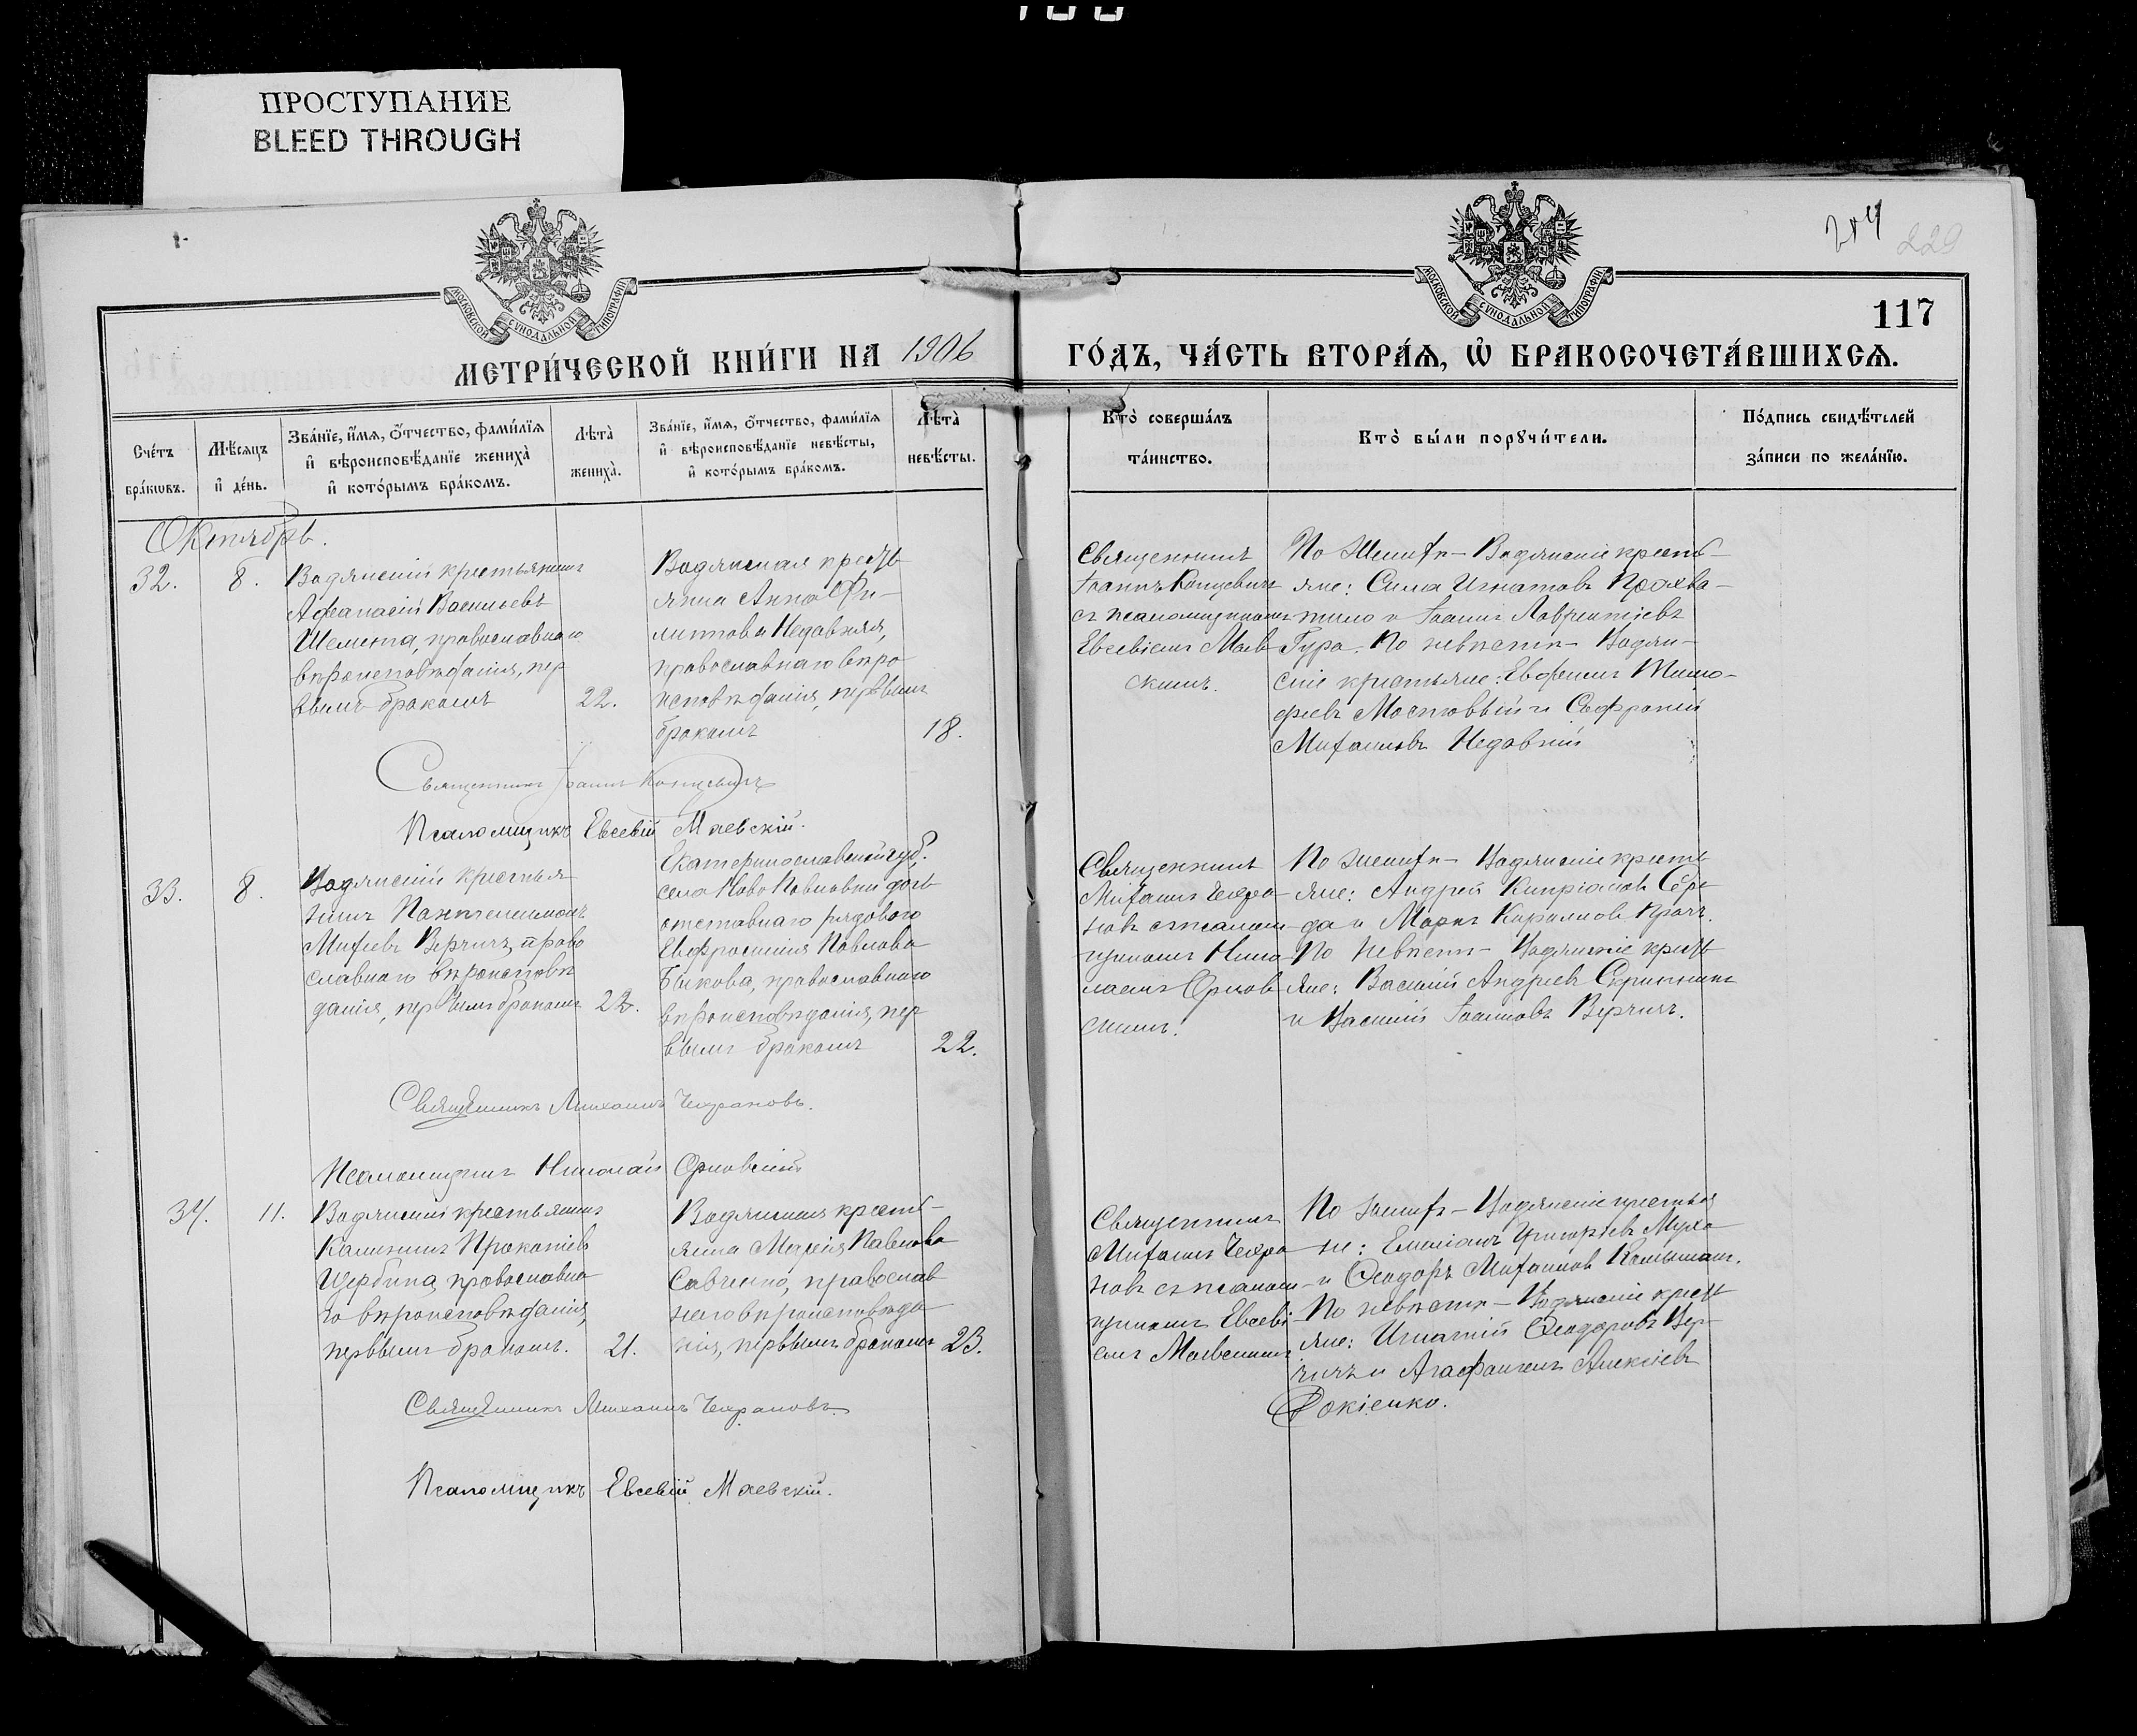 ПРОСТУПАНИЕ
BLEED THROUGH
МОСКОВСКОЙ СУНОДАЛЬНОЙ ТИПОГРАФІИ
МОСКОВСКОЙ СУНОДАЛЬНОЙ ТИПОГРАФІИ
204 229
117
МЕТРИ́ЧЕСКОЙ КНИ́ГИ НА 1906
ГО́ДЪ, ЧА́СТЬ ВТОРА́Я, Ѡ҆ БРАКОСОЧЕТА́ВШИХСЯ.
Сче́тъ бра́кѡвъ.
Мѣ́сяцъ и҆ де́нь.
Зва́нїе, и҆́мя, ѻ҆́тчество, фами́лїя и҆ вѣроисповѣ́данїе жениха̀ и҆ кото́рымъ бра́комъ.
Лѣ́та̀ жениха̀.
Зва́нїе, и҆́мя, ѻ҆́тчество, фами́лїя и҆ вѣроисповѣ́данїе невѣ́сты, и҆ кото́рымъ бра́комъ.
Лѣ́та̀ невѣ́сты.
Кто̀ соверша́лъ та́инство.
Кто̀ бы́ли порꙋчи́тели.
По́дпись свидѣ́телей за́писи по жела́нїю.
Октябрь.
32.
8.
Водянскій крестьянинъ
Афанасій Васильевъ
Шелюта, православнаго
вѣроисповѣданія, пер
вымъ бракомъ
22.
Водянская кресть
янка Анна Фи-
липпова Недавняя,
православнаго вѣро
исповѣданія, первымъ
бракомъ
18.
Священникъ
Іоаннъ Концевичъ
съ псаломщикомъ
Евсевіемъ Маев
скимъ.
По женихѣ – Водянскіе кресть-
яне: Сила Игнатовъ Прохва-
тило и Іоаннъ Лаврентіевъ
Гура. По невѣстѣ – Водян-
скіе крестьяне: Евфимъ Тимо-
феевъ Мостовый и Софроній
Михаиловъ Недавній
Священникъ Іоаннъ Концевичъ
Псаломщикъ Евсевій Маевскій.
33.
8.
Водянскій крестья
нинъ Пантелеимонъ
Михеевъ Верчичъ, право
славнаго вѣроисповѣ
данія, первымъ бракомъ
22.
Екатеринославской губ.
села Ново Павловки дочь
отставнаго рядового
Евфросинія Павлова
Быкова, православнаго
вѣроисповѣданія, пер
вымъ бракомъ
22.
Священникъ
Михаилъ Чехра
новъ съ псалом
щикомъ Нико
лаемъ Орлов
скимъ.
По женихѣ – Водянскіе кресть
яне: Андрей Кипріановъ Сере
да и Маркъ Кирилловъ Прачъ.
По невѣстѣ – Водянскіе кресть
яне: Василій Андреевъ Скрипникъ
и Василій Іоанновъ Верчичъ.
Священникъ Михаилъ Чехрановъ.
Псаломщикъ Николай Орловскій
34.
11.
Водянскій крестьянинъ
Калинникъ Прокопіевъ
Щербина, православна
го вѣроисповѣданія,
первымъ бракомъ.
21.
Водянская кресть-
янка Марія Павлова
Савченко, православ
наго вѣроисповѣда
нія, первымъ бракомъ
23.
Священникъ
Михаилъ Чехра
новъ съ псалом
щикомъ Евсеві
емъ Маевскимъ
По женихѣ – Водянскіе крестья
не: Емиліанъ Григоріевъ Муха
и Ѳеодоръ Михаиловъ
По невѣстѣ – Водянскіе кресть
яне: Игнатій Ѳеодоровъ Вер-
чичъ и Агафангелъ Алексіевъ
Фокіенко.
Священникъ Михаилъ Чехрановъ
Псаломщикъ Евсевій Маевскій.